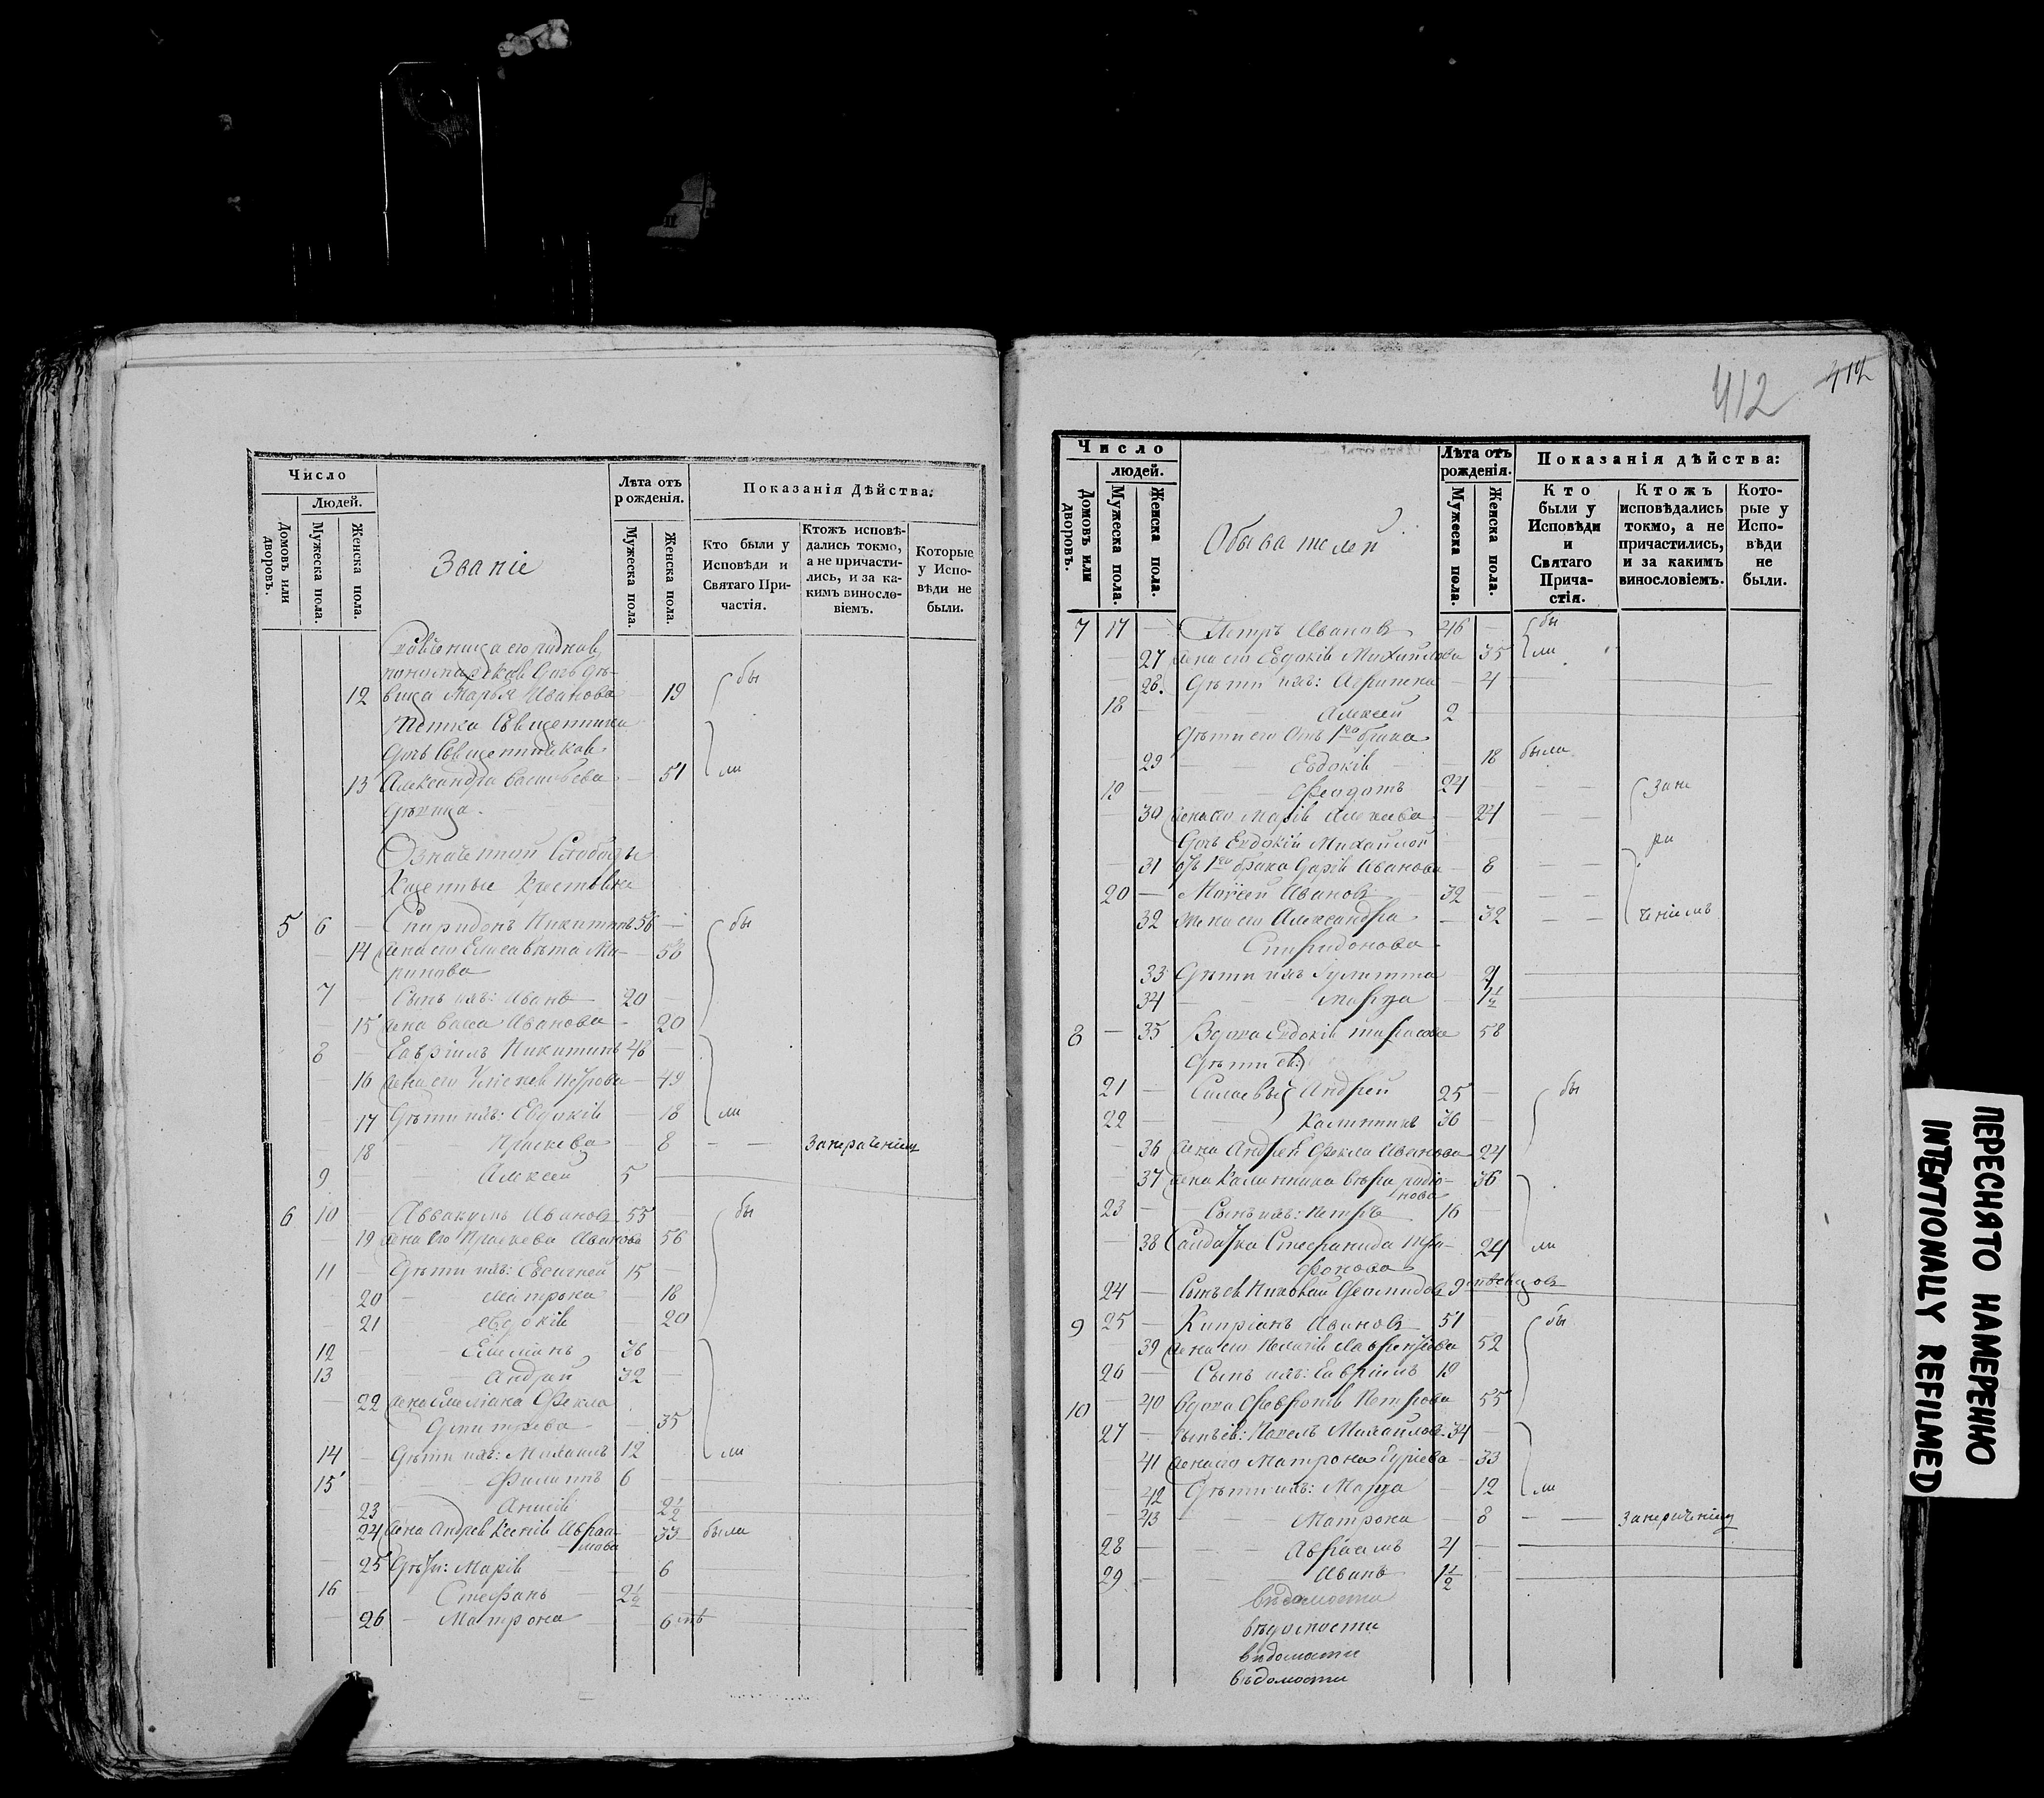 Число
Людей.
Домовъ или дворовъ.
Мужеска пола.
Женска пола.
Званіе
Лѣта отъ рожденія.
Мужеска пола.
Женска пола.
Показанія Дѣйства:
Кто были у Исповѣди и Святаго Причастія.
Ктожъ исповѣдались токмо, а не причастились, и за какимъ винословіемъ.
Которые у Исповѣди не были.
12 вица Марья Иванова 19 бы
Тетка Священника
Дочь Священников
13 Александра Васильева 51 ли
дѣвица.
Означенной Слободы
Казенные Крестьяне
5 6 — Спиридонъ Никитинъ 56 — бы
— 14 Жена его Елисавѣта Ма- — 58
7 — Сынъ ихъ: Иванъ 20 —
— 15 Жена Васса Иванова — 20
8 — Гавріилъ Никитинъ 48 —
— 16 Жена его Петрова — 49
— 17 Дѣти ихъ: Евдокія — 18 ли
— 18 — Праскева — 8 — — За
9 — — Алексей 5
6 10 — Аввакумъ Ивановъ 55 — бы
— 19 Жена его Праскева Иванова 56
11 — Дѣти ихъ: Евсигней 15 —
— 20 — Матрона — 18
— 21 — Евдокія — 20
12 — — Емелианъ 36 —
13 — — Андрей 32 —
— 22 Жена Емелиана Фекла
Дмитрева — 35
14 — Дѣти ихъ: Михаилъ 12 — ли
15 — — Филиппъ 6 —
23 — Анисія — 2½
24 Жена Андрея Ксенія Авраа- — 33 была
мова
— 25 Дѣти: Марія — 6
16 — Стефанъ 2½
— 26 — Матрона — 6 мѣ
412 412
Число
людей.
Домовъ или дворовъ.
Мужеска пола.
Женска пола.
Обывателей
Лѣта отъ рожденія.
Мужеска пола.
Женска пола.
Показанія дѣйства:
Кто были у Исповѣди и Святаго Причастія.
Ктожъ исповѣдались токмо, а не причастились, и за какимъ винословіемъ.
Которые у Исповѣди не были.
7 17 — Петръ Ивановъ 46 — бы
— 27 Жена его Евдокія Михайлова 35 ли
— 28. Дѣти ихъ: Агрипена — 4
18 — Алексей 2
Дѣти его отъ 1го брака
29 — — Евдокія — 18 была
19 — — Феодотъ 24 — — — Зане
— 30 Жена его Марія — 24 — —
Дочь Евдокіи Михайлой ра
— 31 отъ 1го брака Дарія Иванова — 8 — —
20 — Моисей Ивановъ 32 — — —
32 Жена его Александра — 32 — — ченіемъ
Спиридонова
33 Дѣти ихъ Іулитта — 4
34 — — Марѳа — 1½
8 — 35 Вдова Евдокія Тарасова 58
Дѣти ея:
21 — Андрей 25 — бы
22 — Калинникъ 36 —
— 36 Жена Андрея Фекла Иванова 24
— 37 Жена Калинника Вѣра Родіо- — 36
нова
23 — Сынъ ихъ: Петръ 16 —
38 Салдатка Стефанида Три- — 24 ли
фонова
24 — Сынъ ея Николай 9 мѣсяцовъ
9 25 — Кипріанъ Ивановъ 51 — бы
— 39 Жена его Пелагія Лаврентьева 52
26 — Сынъ ихъ: Гавріилъ 19
10 — 40 Вдова Февронія Петрова 55
27 — Сынъ ея: Павелъ Михайловъ 34 —
— 41 Жена его Матрона Гуріева — 33
— 42 Дѣти ихъ: Марѳа — 12 ли
— 43 — Матрона — 8 — — За
28 — — Авраамъ 4 —
29 — — Иванъ 1½ —
вѣдомости
вѣдомости
вѣдомости
вѣдомости
ПЕРЕСНЯТО НАМЕРЕННО
INTENTIONALLY REFILMED